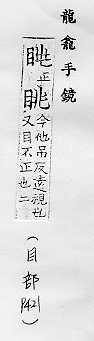 龍龕手鏡
正眺今他吊反遠視也
又目不正也二
(目部 P421)